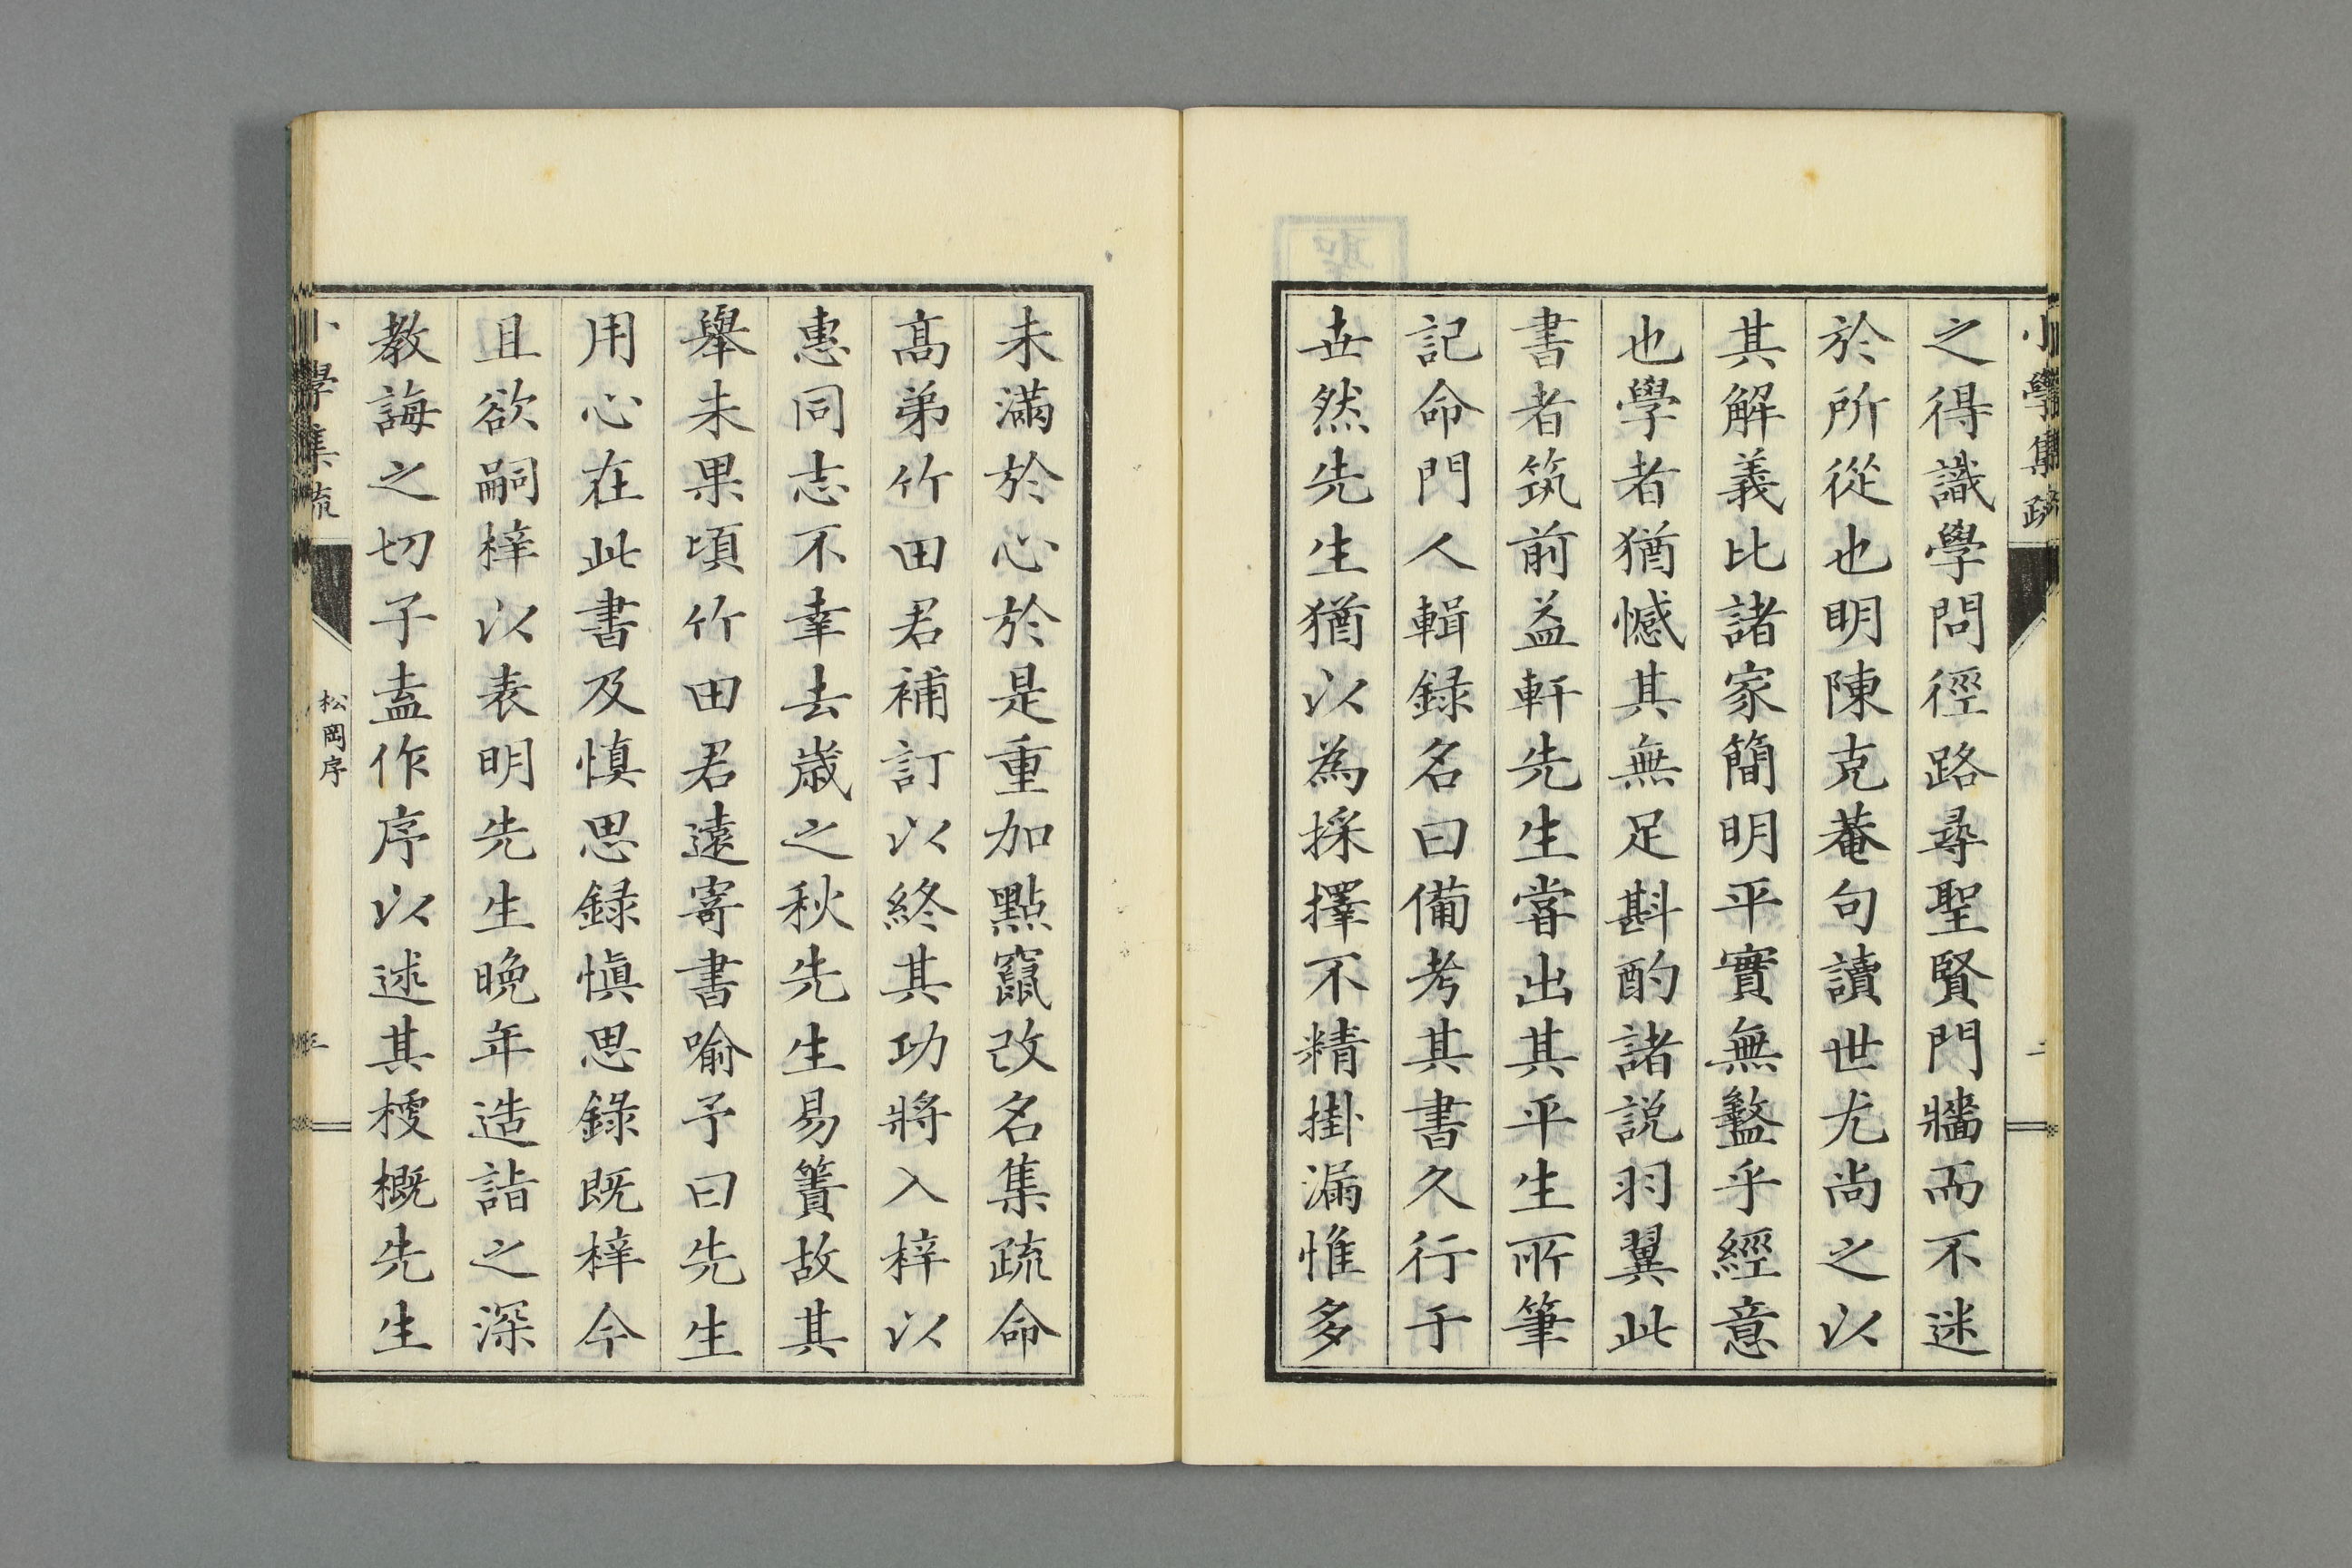 小學集疏
二
之得識學問徑路尋聖賢門牆而不迷
於所從也明陳克菴句讀世尤尚之以
其解義比諸家簡明平實無盭乎經意
也學者猶憾其無足斟酌諸説羽翼此
書者筑前益軒先生嘗出其平生所筆
記命門人輯録名曰備考其書久行于
世然先生猶以為採擇不精掛漏惟多
未滿於心於是重加點竄改名集疏命
髙弟竹田君補訂以終其功將入梓以
惠同志不幸去歳之秋先生易簀故其
舉未果頃竹田君遠寄書喻予曰先生
用心在此書及慎思録慎思錄既梓今
且欲嗣梓以表明先生晩年造詣之深
教誨之切子盍作序以述其梗概先生
小學集疏
松岡序
三